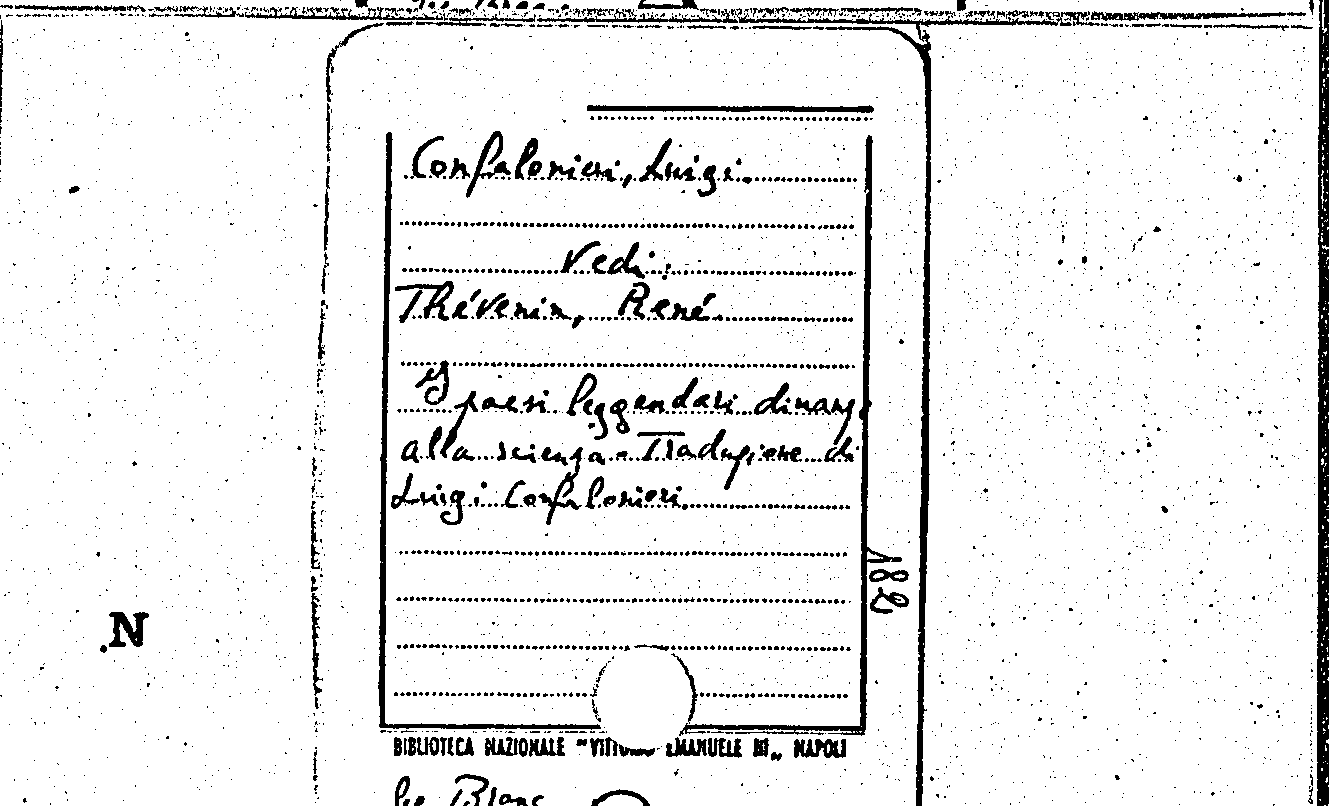 Confalonieri, Luigi.
Vedi:
Thévenin, René.
I paesi leggendari dinanzi
alla scienza - Traduzione di
Luigi Confalonieri.
182
N
BIBLIOTECA NAZIONALE "VITTORIO EMANUELE III„ NAPOLI
Le Blanc